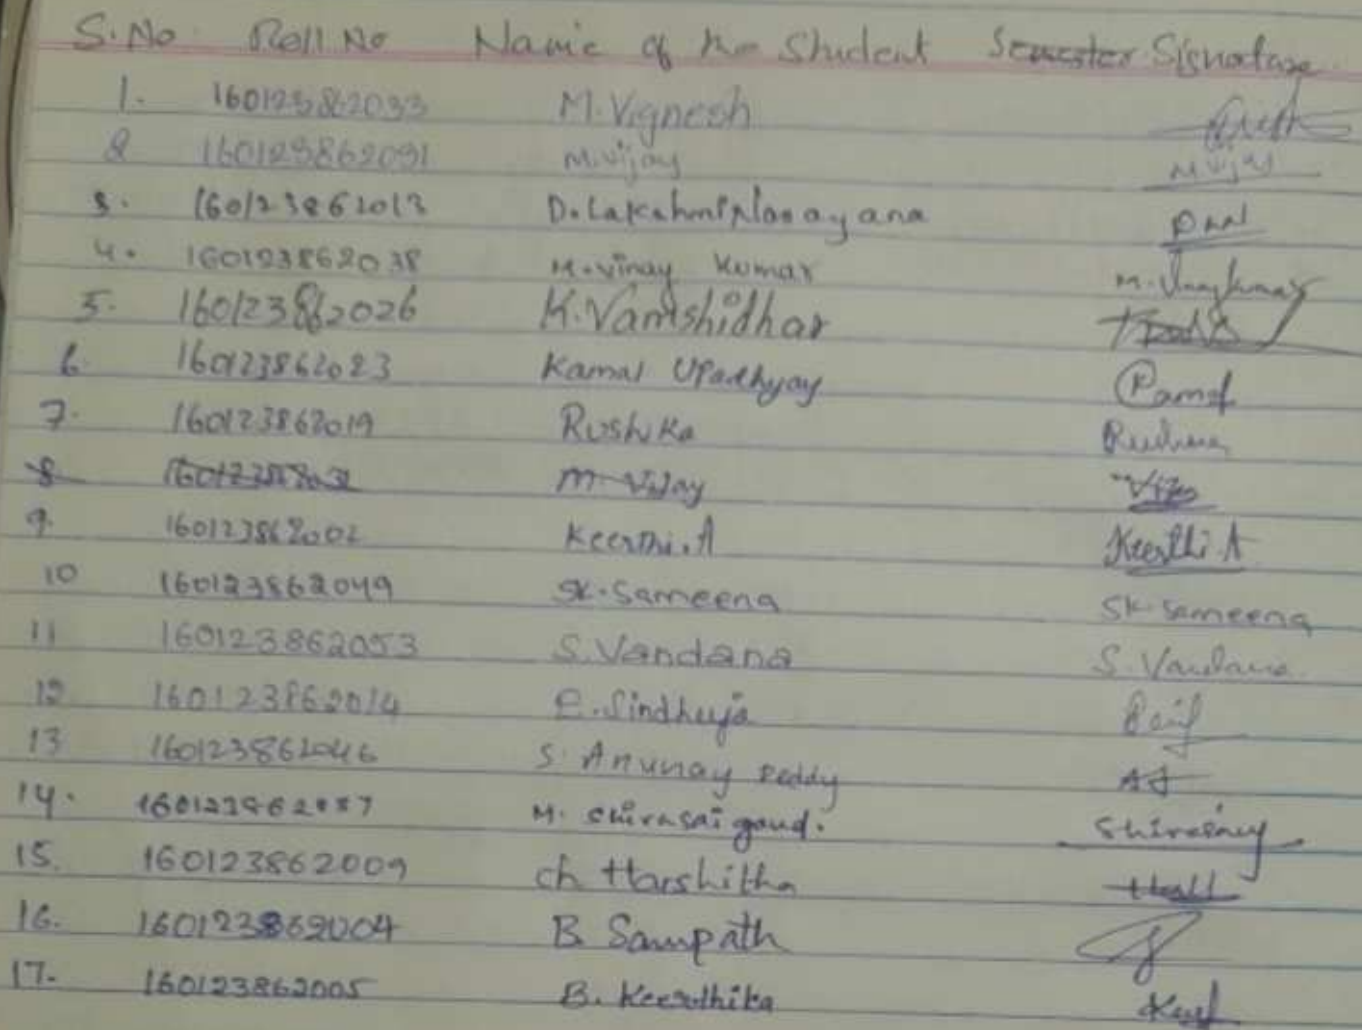 S.No Roll No Name of the Student Semester Signature
1. 160123862033 M.Vignesh
2 160123862031 M.Vijay M Vijay
3. 160123862013 D.LakshmiNarayana
4. 160123862038 M.Vinay Kumar M.Vinaykumar
5. 160123862026 K.Vamshidhar
6. 160123862023 Kamal Upadhyay
7. 160123862019 Rushika
8 M Vijay
9. 160123862002 Keerthi.A Keerthi A
10 160123862049 SK.Sameena SK Sameena
11 160123862053 S.Vandana S.Vandana
12 160123862014 E.Sindhuja
13 160123862046 S. Anunay Reddy
14. 160123862037 M. Shivasai goud.
15. 160123862009 ch Harshitha
16. 160123862004 B Sampath
17. 160123862005 B. Keerthika